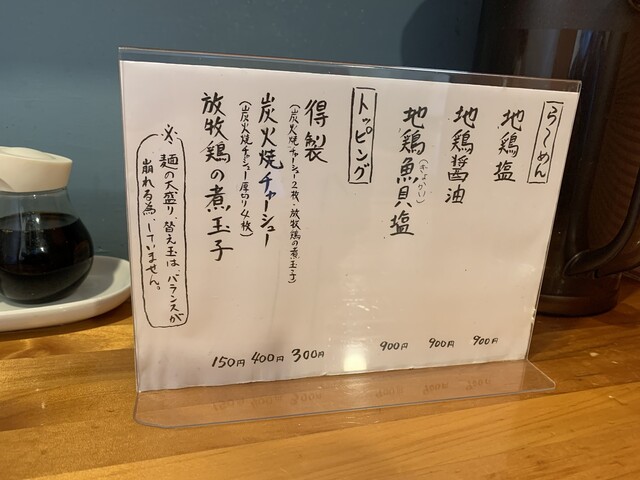 らーめん
地鶏塩 900円
地鶏醤油 900円
地鶏魚貝塩 900円
(ぎょかい)
トッピング
得製 300円
(炭火焼チャーシュー2枚・放牧鶏の煮玉子)
炭火焼チャーシュー 400円
(炭火焼チャーシュー厚切り4枚)
放牧鶏の煮玉子 150円
※麺の大盛り、替え玉は、バランスが
崩れる為、していません。